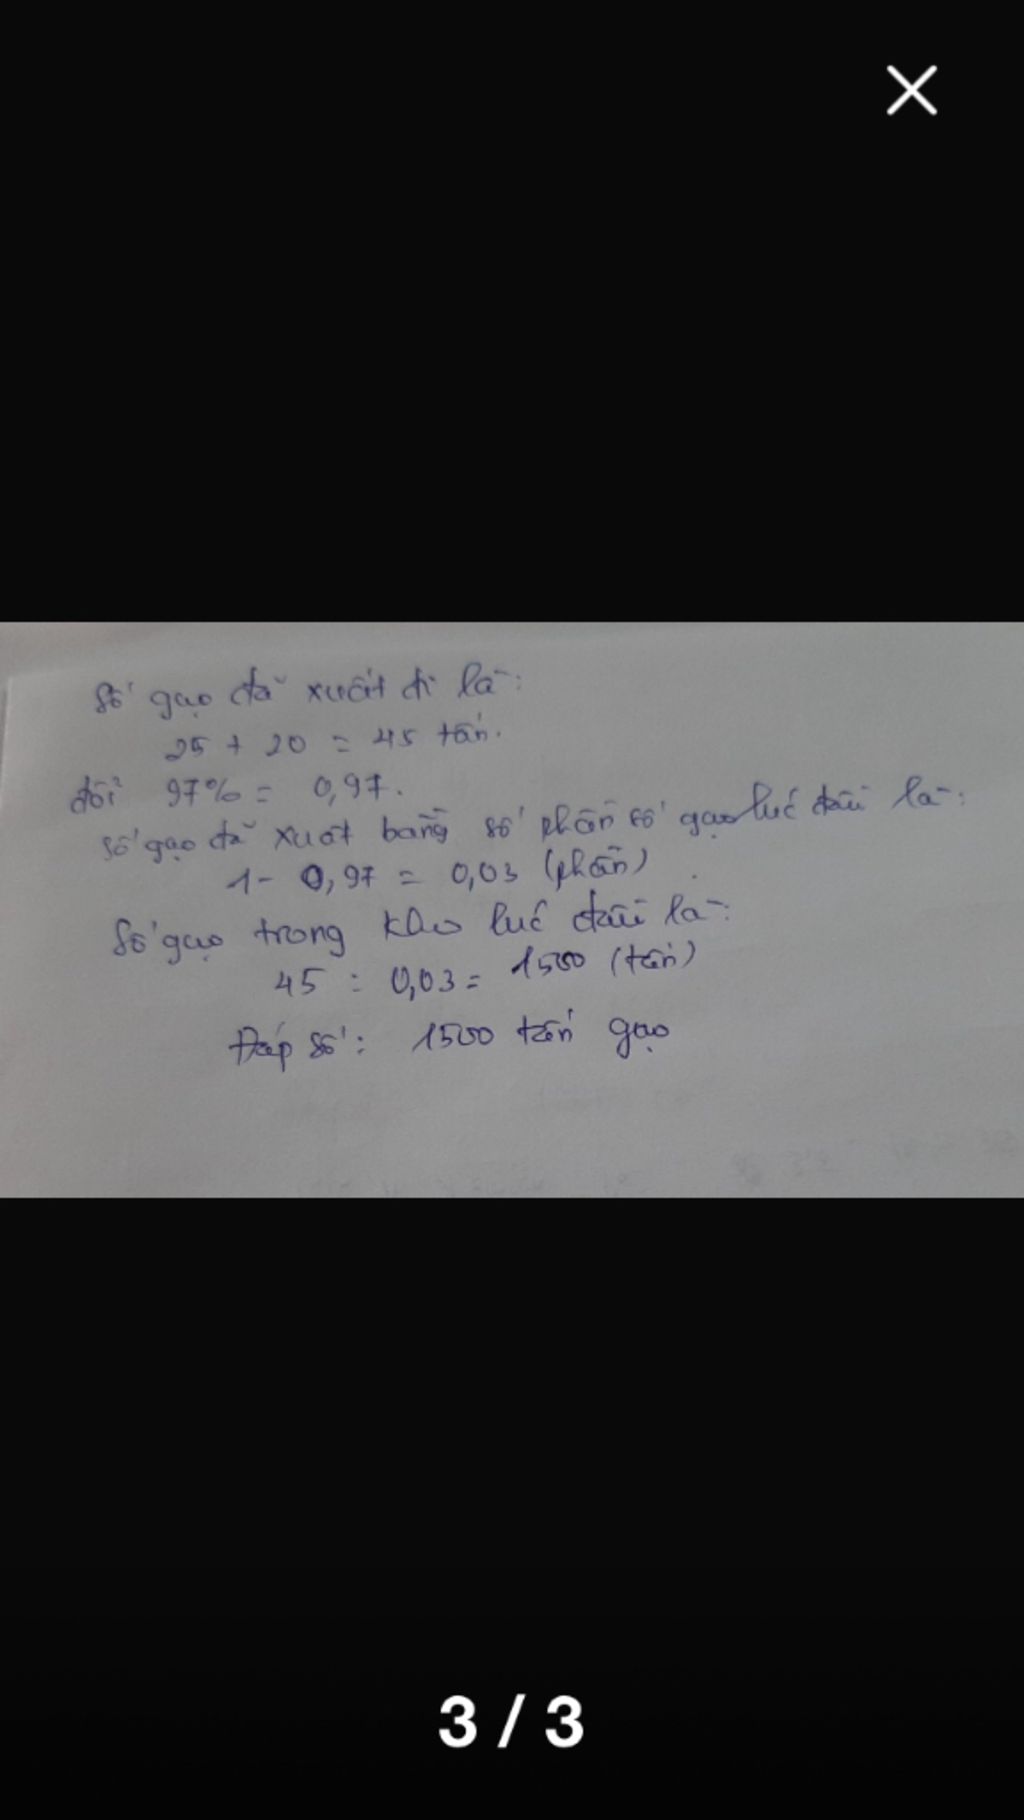 Số gạo đã xuất đi là:
25 + 20 = 45 tấn.
đổi 97% = 0,97.
số gạo đã xuất bằng số phần số gạo lúc đầu là:
1 - 0,97 = 0,03 (phần)
Số gạo trong kho lúc đầu là:
45 : 0,03 = 1500 (tấn)
Đáp số: 1500 tấn gạo
3 / 3